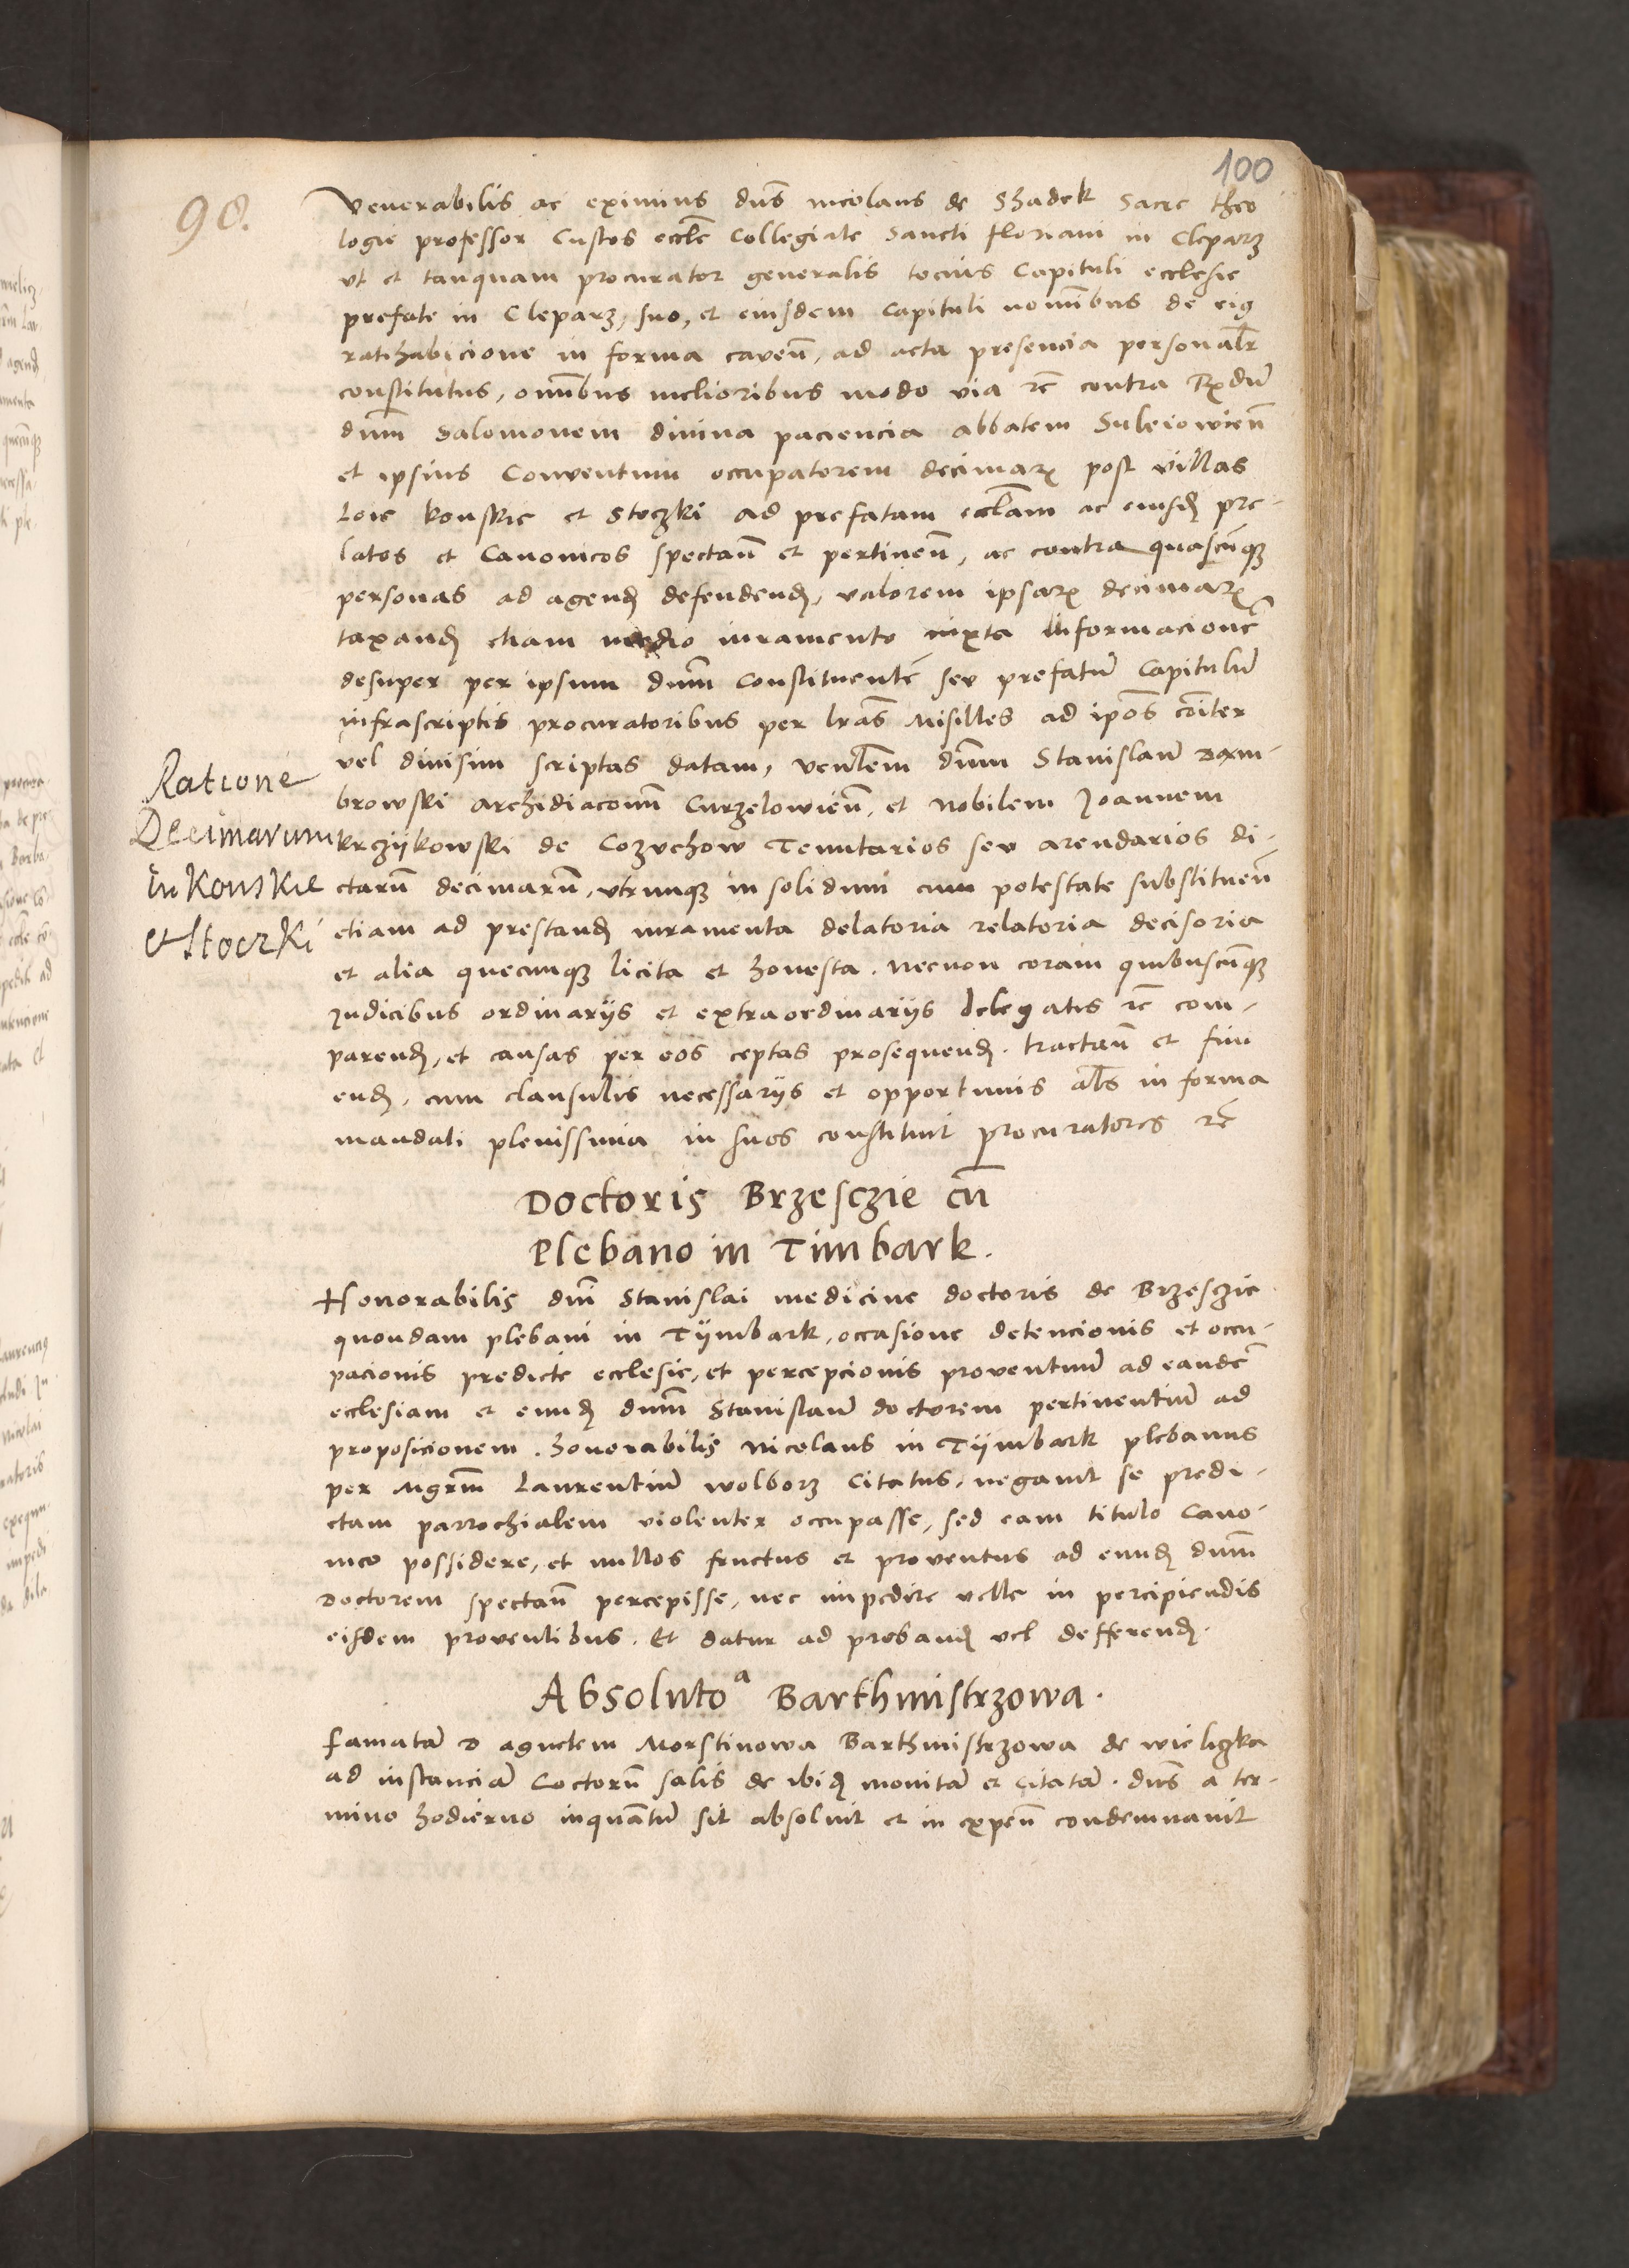 100
98.
Venerabilis ac eximius dns nicolaus de Shadek Sacre theo
logie professor Custos eccle Collegiate Sancti Floriani in Cleparz
ut et tanquam procurator generalis tocius Capituli ecclesie
prefate in Cleparz, suo, et eiusdem Capituli nominibus de eig
ratihabicione in forma caven, ad acta presencia personalr
constitutus, omnibus melioribus modo via rc contra Rxdu
dnm Salomonem divina paciencia abbatem Suleiowien
et ipsius Conventum occupatorem decimar post villas
Loie konskie et Stoczki ad prefatam ecclam ac eiusd pre-
latos et Canonicos spectan et pertinen, ac contra quascunq
personas ad agend defendend, valorem ipsar decimar
taxand etiam medio iuramento iuxta informacione
desuper per ipsum dnm Constituente seu prefatu Capitulu
infrascriptis procuratoribus per lras Missiles ad ipos coiter
vel divisim scriptas datam, venlem dnm Stanislau Dam-
browski archidiaconu Curzelowien, et Nobilem Joannem
krczijkowski de Cozuchow Tenutarios seu arendarios di-
ctaru decimaru, utrunq in solidum cum potestate substituen
etiam ad prestand iuramenta delatoria relatoria decisoria
et alia quecunq licita et honesta. necnon coram quibuscunq
Judicibus ordinariis et extraordinariis delegatis rc com-
parend, et causas per eos ceptas prosequend. tractan et fini
end. cum clausulis necessariis et opportunis als in forma
mandati plenissima in suos constituit procuratores rc
Ratione
Decimarum
in Konskie
et Stoczki
Doctoris Brzesczie cu
Plebano in Timbark.
Honorabilis dni Stanislai medicine doctoris de Brzesczie
quondam plebani in Tijmbark, occasione detencionis et occu-
pacionis predicte ecclesie, et percepcionis proventuu ad eande
ecclesiam et eund dnm Stanislau doctorem pertinentiu ad
proposicionem. honorabilis Nicolaus in Tijmbark plebanus
per Mgrm Laurentiu wolborz Citatus, negavit se predi-
ctam parrochialem violenter occupasse, sed eam titulo Cano-
nico possidere, et nullos fructus et proventus ad eund dnm
Doctorem spectan percepisse, nec impedire velle in percipiendis
eisdem proventibus. Et datur ad proband vel defferend.
Absoluto a Barthmistrzowa.
famata D agnetem Morstinowa Barthmistrzowa de wieligka
ad instancia Coctoru salis de ibid monita et citata. dns a ter-
mino hodierno inquantu sit absolvit et in expen condemnavit